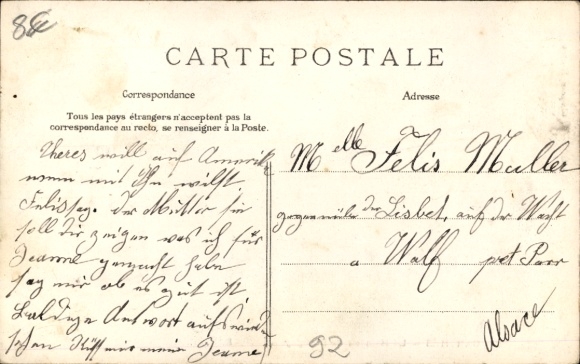 88
CARTE POSTALE
Correspondance
Adresse
Tous les pays étrangers n'acceptent pas la
correspondance au recto, se renseigner à la Poste.
Theres will auf Amerik
wenn mit Ihn wilst
Felis sag. der Mutter sie
soll dir zeigen was ich für
Jeanne gemacht habe
sag mir ob es gut ist
Baldige Antwort aufs wied
sehen Küss mir mein Jeanne
Melle Felis Muller
gegenüber der Lisbet, auf der Wacht
a Walf pet Parr
Alsace
92